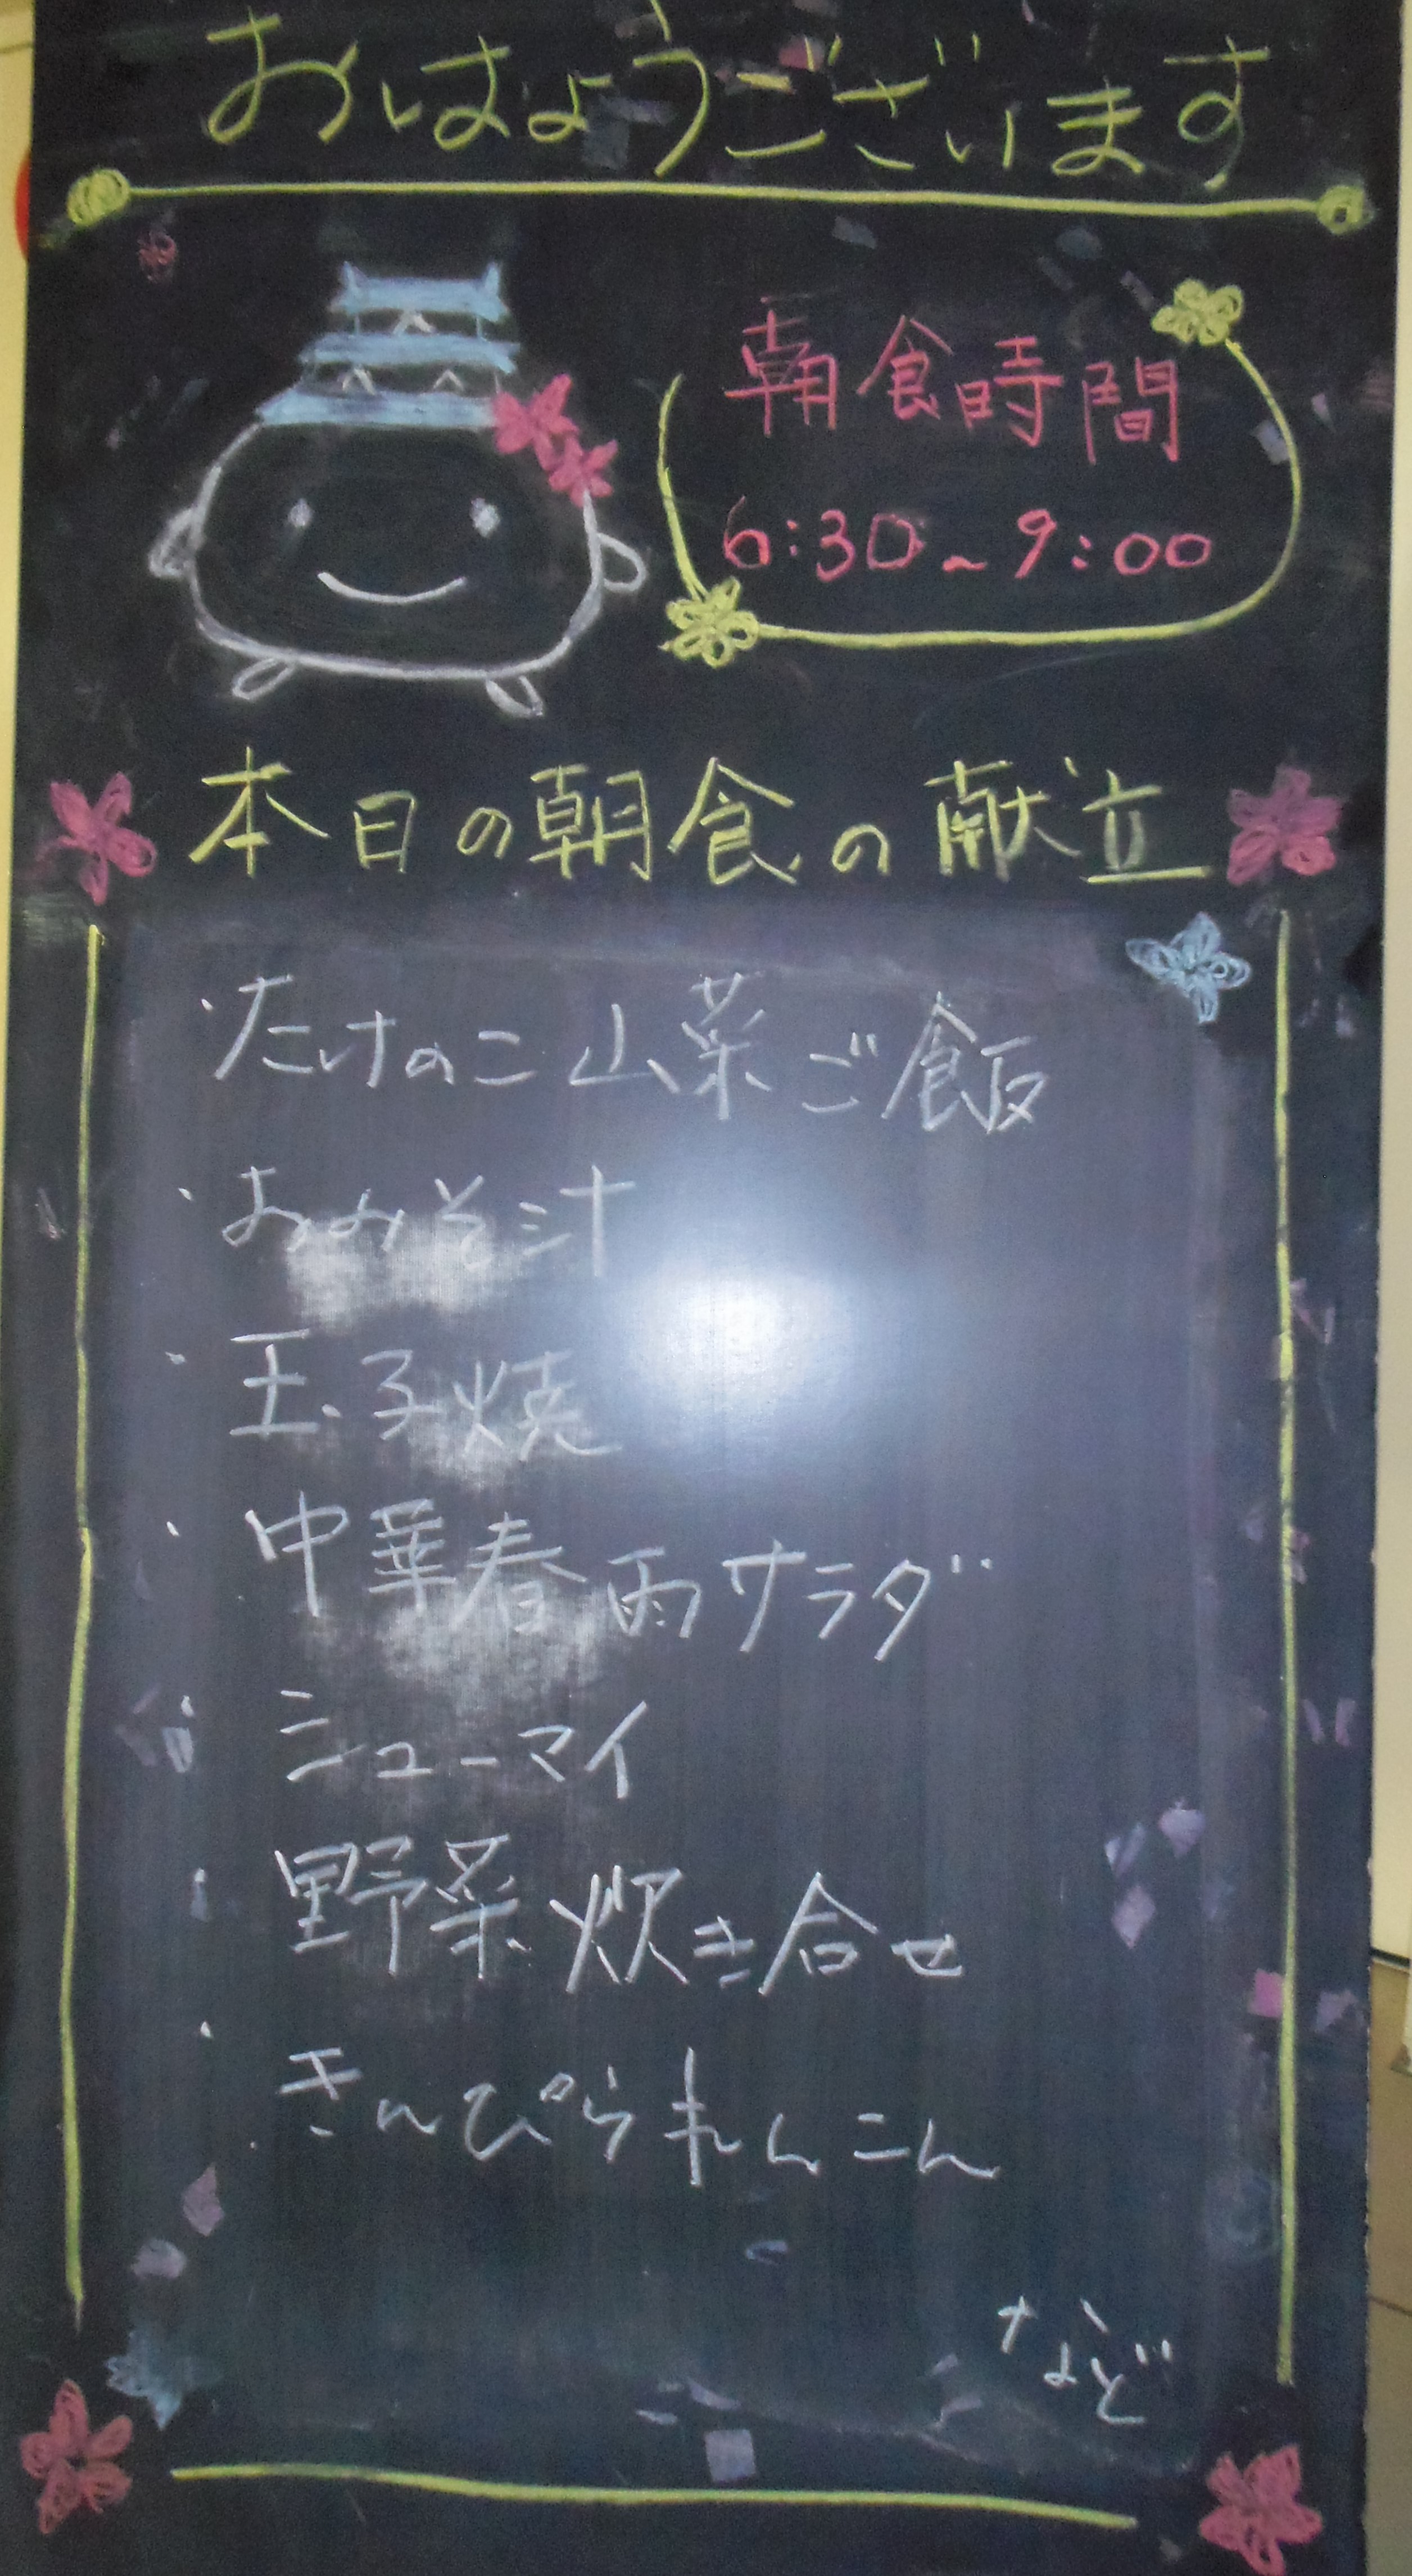 おはようございます
朝食時間
6:30~9:00
本日の朝食の献立
・たけのこ山菜ご飯
・おみそ汁
・玉子焼
・中華春雨サラダ
・シューマイ
・野菜炊き合せ
・きんぴられんこん
など